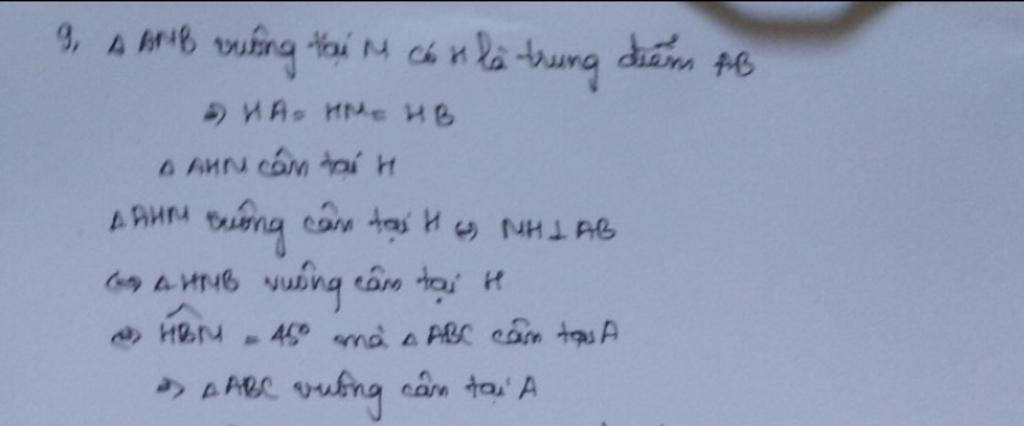 9, △ AMB vuông tại M có H là trung điểm AB
=> HA = HM = HB
△ AHM cân tại H
△ AHM vuông cân tại H <=> MH ⊥ AB
<=> △ HMB vuông cân tại H
<=> \widehat{HBM} = 45° mà △ ABC cân tại A
=> △ ABC vuông cân tại A